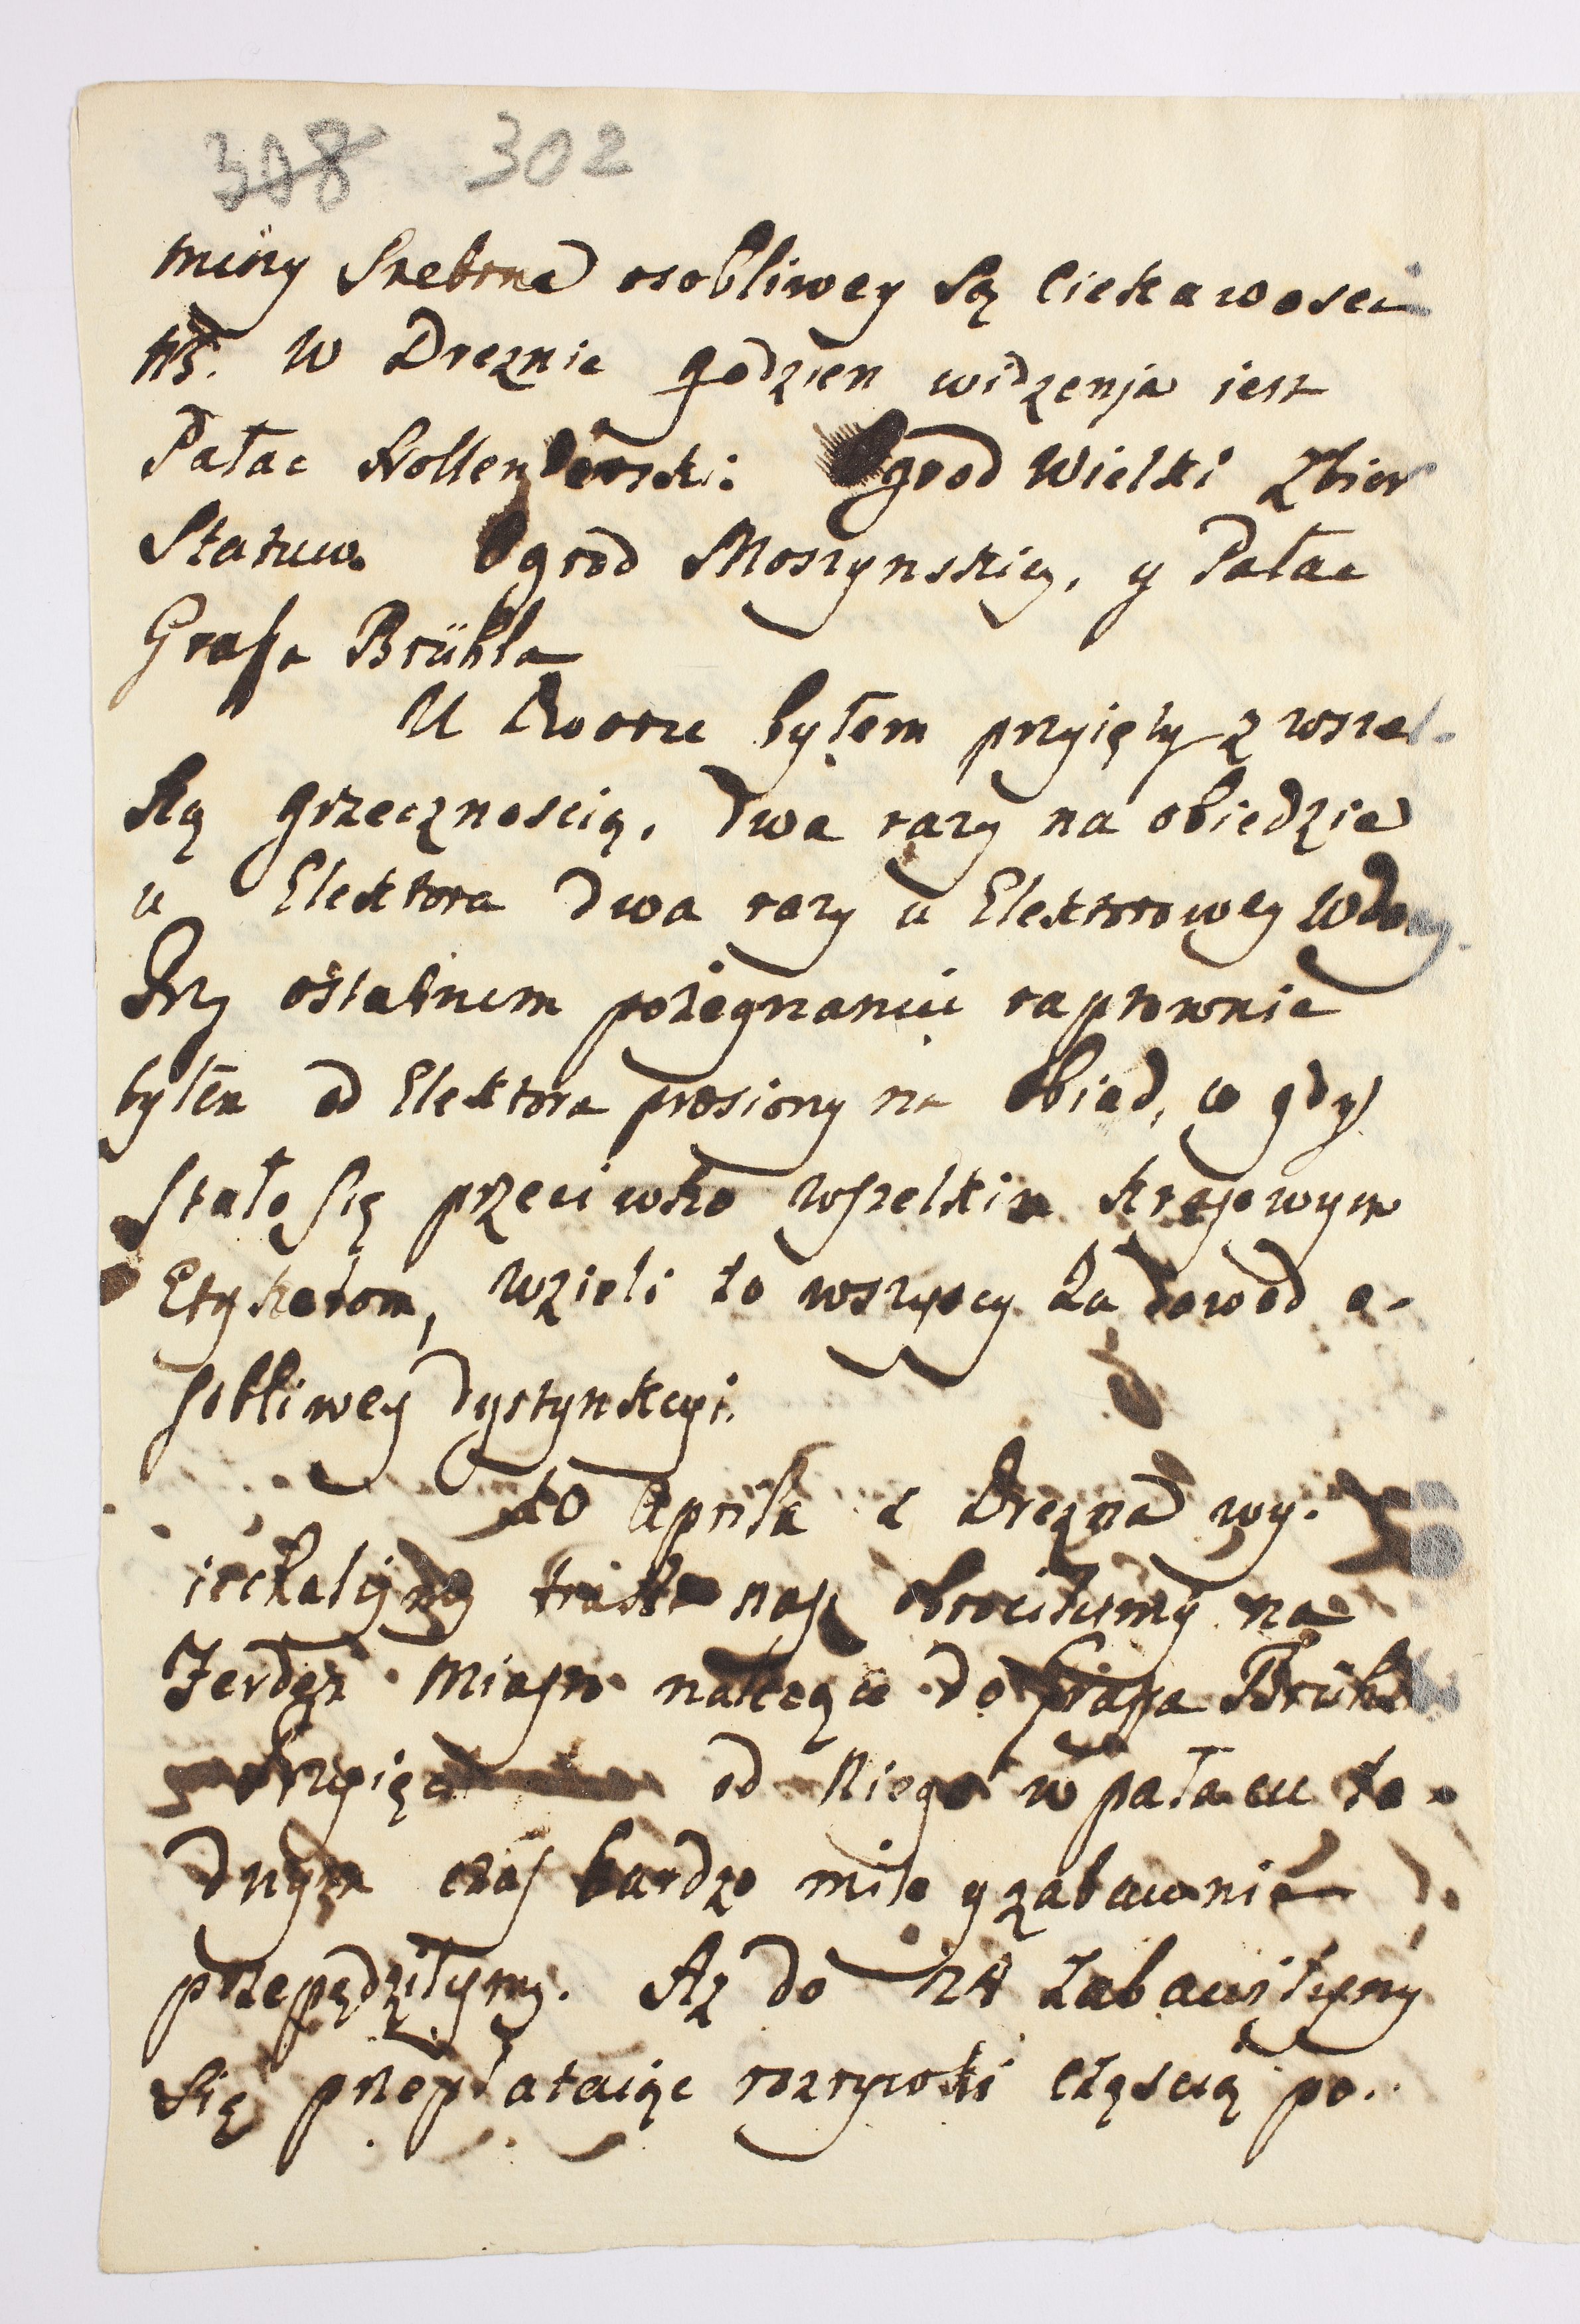 308 302
miny Srebrne osobliwey są Ciekawosci
NB. W Dreznie godzien widzenja jest
Pałac Hollenderski. Ogrod Wielki Zbior
Statuw. Ogrod Moszynskiey, y Pałac
Grafa Brühla
U Dworu byłem przyięty z wszel-
ką grzecznoscią, dwa razy na obiedzie
u Elektora dwa razy u Elektorowey Wdowy.
Przy ostatnim pożegnaniu raptownie
byłem od Elektora proszony na Obiad, co gdy
stało się przeciwko wszelkim krajowym
Etykietom, wzieli to wszyscy za dowod o-
sobliwey dystynkcyi.
10 Aprila z Drezna wy-
iechalismy nasz obrocilismy na
miasto należące do Grafa Brühla
przyięci od Niego w pałacu
czas bardzo mile y zabawnie
przepędzilismy. Aż do 24 zabawilismy
się przeplataiąc rozrywki częscią po-